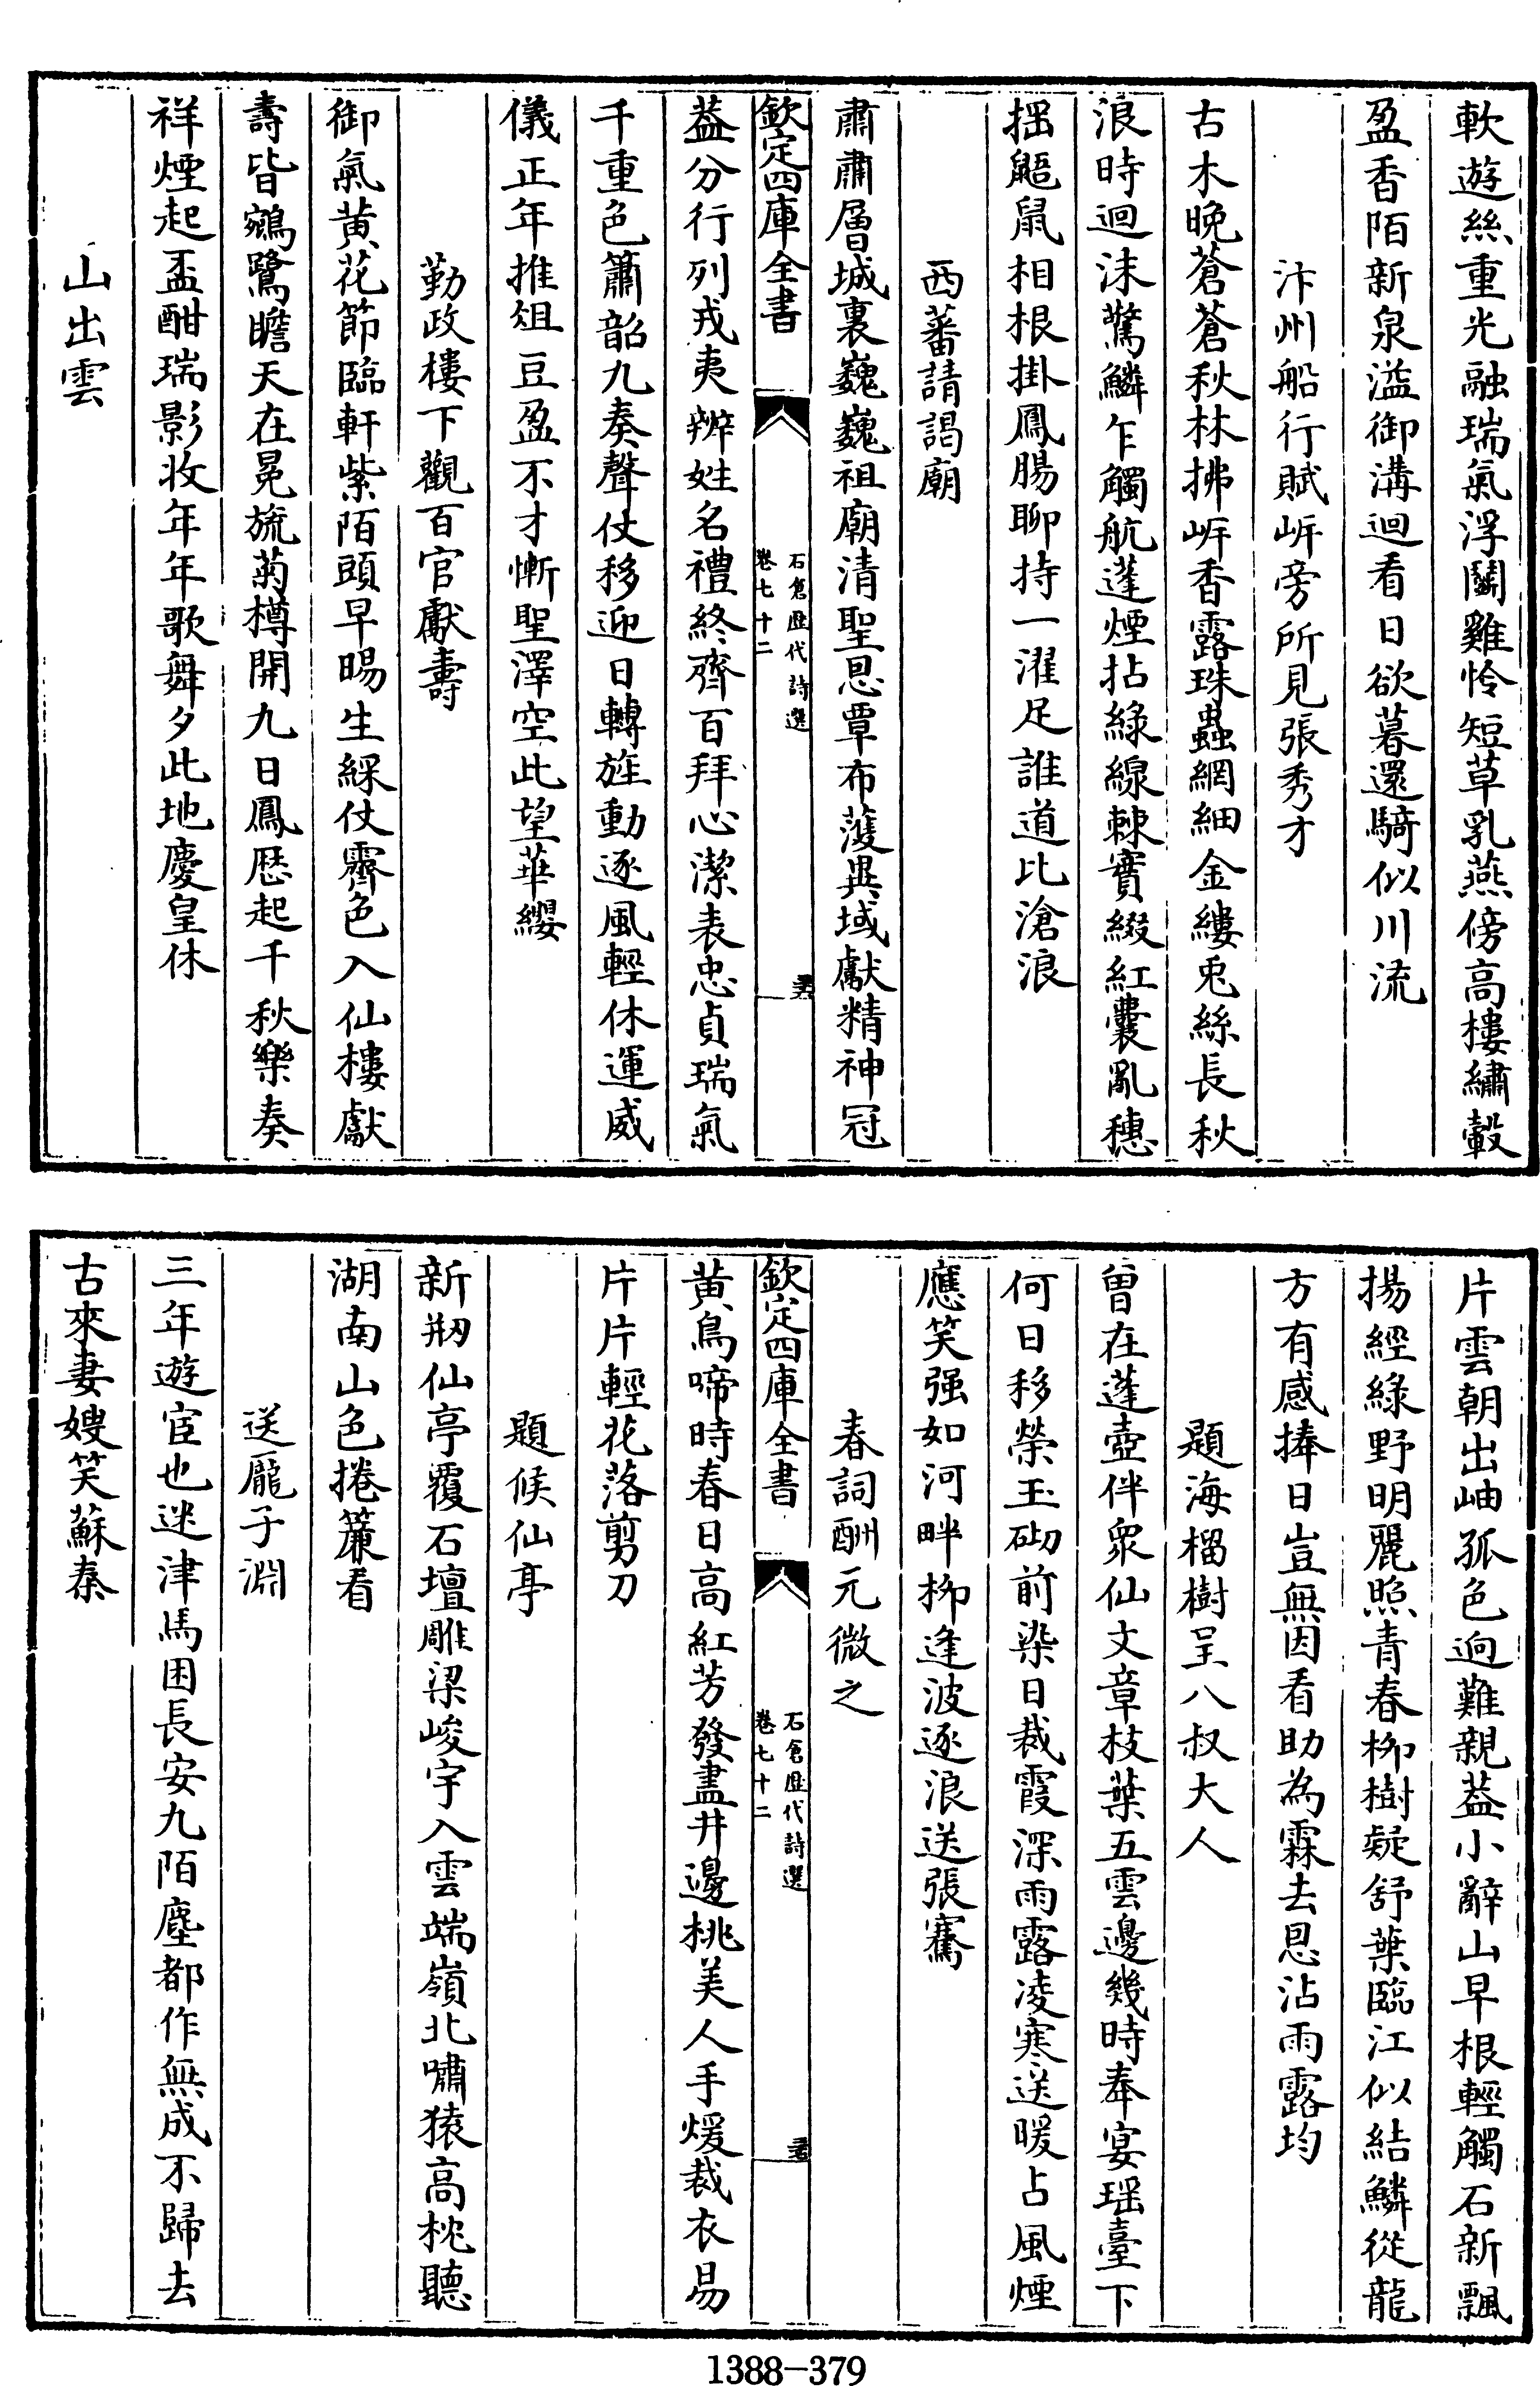 軟遊絲重光融瑞氣浮鬬雞怜短草乳燕傍高樓繡轂
盈香陌新泉溢御溝迴看日欲暮還騎似川流
汴州船行賦岍旁所見張秀才
古木晚蒼蒼秋林拂岍香露珠蟲網細金縷兎絲長秋
浪時迴沫驚鱗乍觸航蓬煙拈綠線棘實綴紅囊亂穗
搖鼯鼠相根掛鳳腸聊持一濯足誰道比滄浪
西蕃請謁廟
肅肅層城裏巍巍祖廟清聖恩覃布濩異域獻精神冠
欽定四庫全書
石倉歴代詩選
卷七十二
葢分行列戎夷辨姓名禮終齊百拜心潔表忠貞瑞氣
千重色簫韶九奏聲仗移迎日轉旌動逐風輕休運威
儀正年推俎豆盈不才慚聖澤空此望華纓
勤政樓下觀百官獻壽
御氣黃花節臨軒紫陌頭早暘生綵仗霽色入仙樓獻
壽皆鵷鷺瞻天在冕旒菊樽開九日鳳厯起千秋樂奏
祥煙起盃酣瑞影收年年歌舞夕此地慶皇休
山出雲
片雲朝出岫孤色迥難親葢小辭山早根輕觸石新飄
揚經綠野明麗照青春栁樹疑舒葉臨江似結鱗從龍
方有感捧日豈無因看助為霖去恩沾雨露均
題海榴樹呈八叔大人
曽在蓬壺伴衆仙文章枝葉五雲邊幾時奉宴瑶臺下
何日移榮玉砌前染日裁霞深雨露凌寒送暖占風煙
應笑强如河畔栁逢波逐浪送張騫
春詞酬元微之
欽定四庫全書
石倉歴代詩選
卷七十二
黃鳥啼時春日高紅芳發盡井邊桃美人手煖裁衣易
片片輕花落剪刀
題候仙亭
新剏仙亭覆石壇雕梁峻宇入雲端嶺北嘯猿高枕聽
湖南山色捲簾看
送龎子淵
三年遊宦也迷津馬困長安九陌塵都作無成不歸去
古來妻嫂笑蘇秦
1388-379